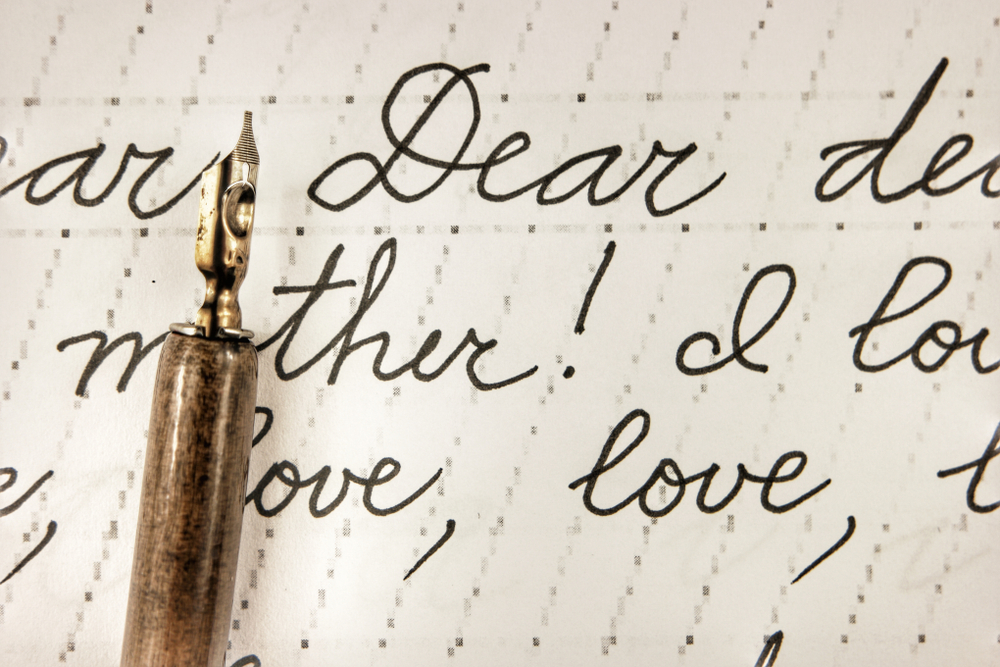 ar Dear de
mother! I lov
e, love, love,